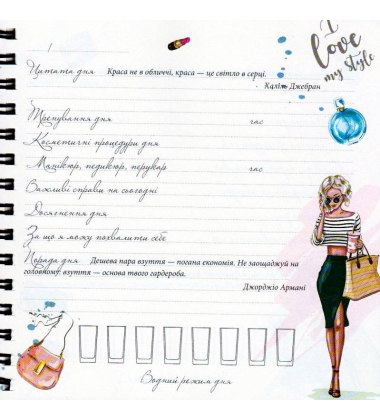 I
love
my style
Цитата дня Краса не в обличчі, краса — це світло в серці.
Халіль Джебран
Тренування дня час
Косметичні процедури дня
Манікюр, педикюр, перукар час
Важливі справи на сьогодні
Досягнення дня
За що я можу похвалити себе
Порада дня Дешева пара взуття — погана економія. Не заощаджуй на
головному: взуття — основа твого гардероба.
Джорджіо Армані
Водний режим дня